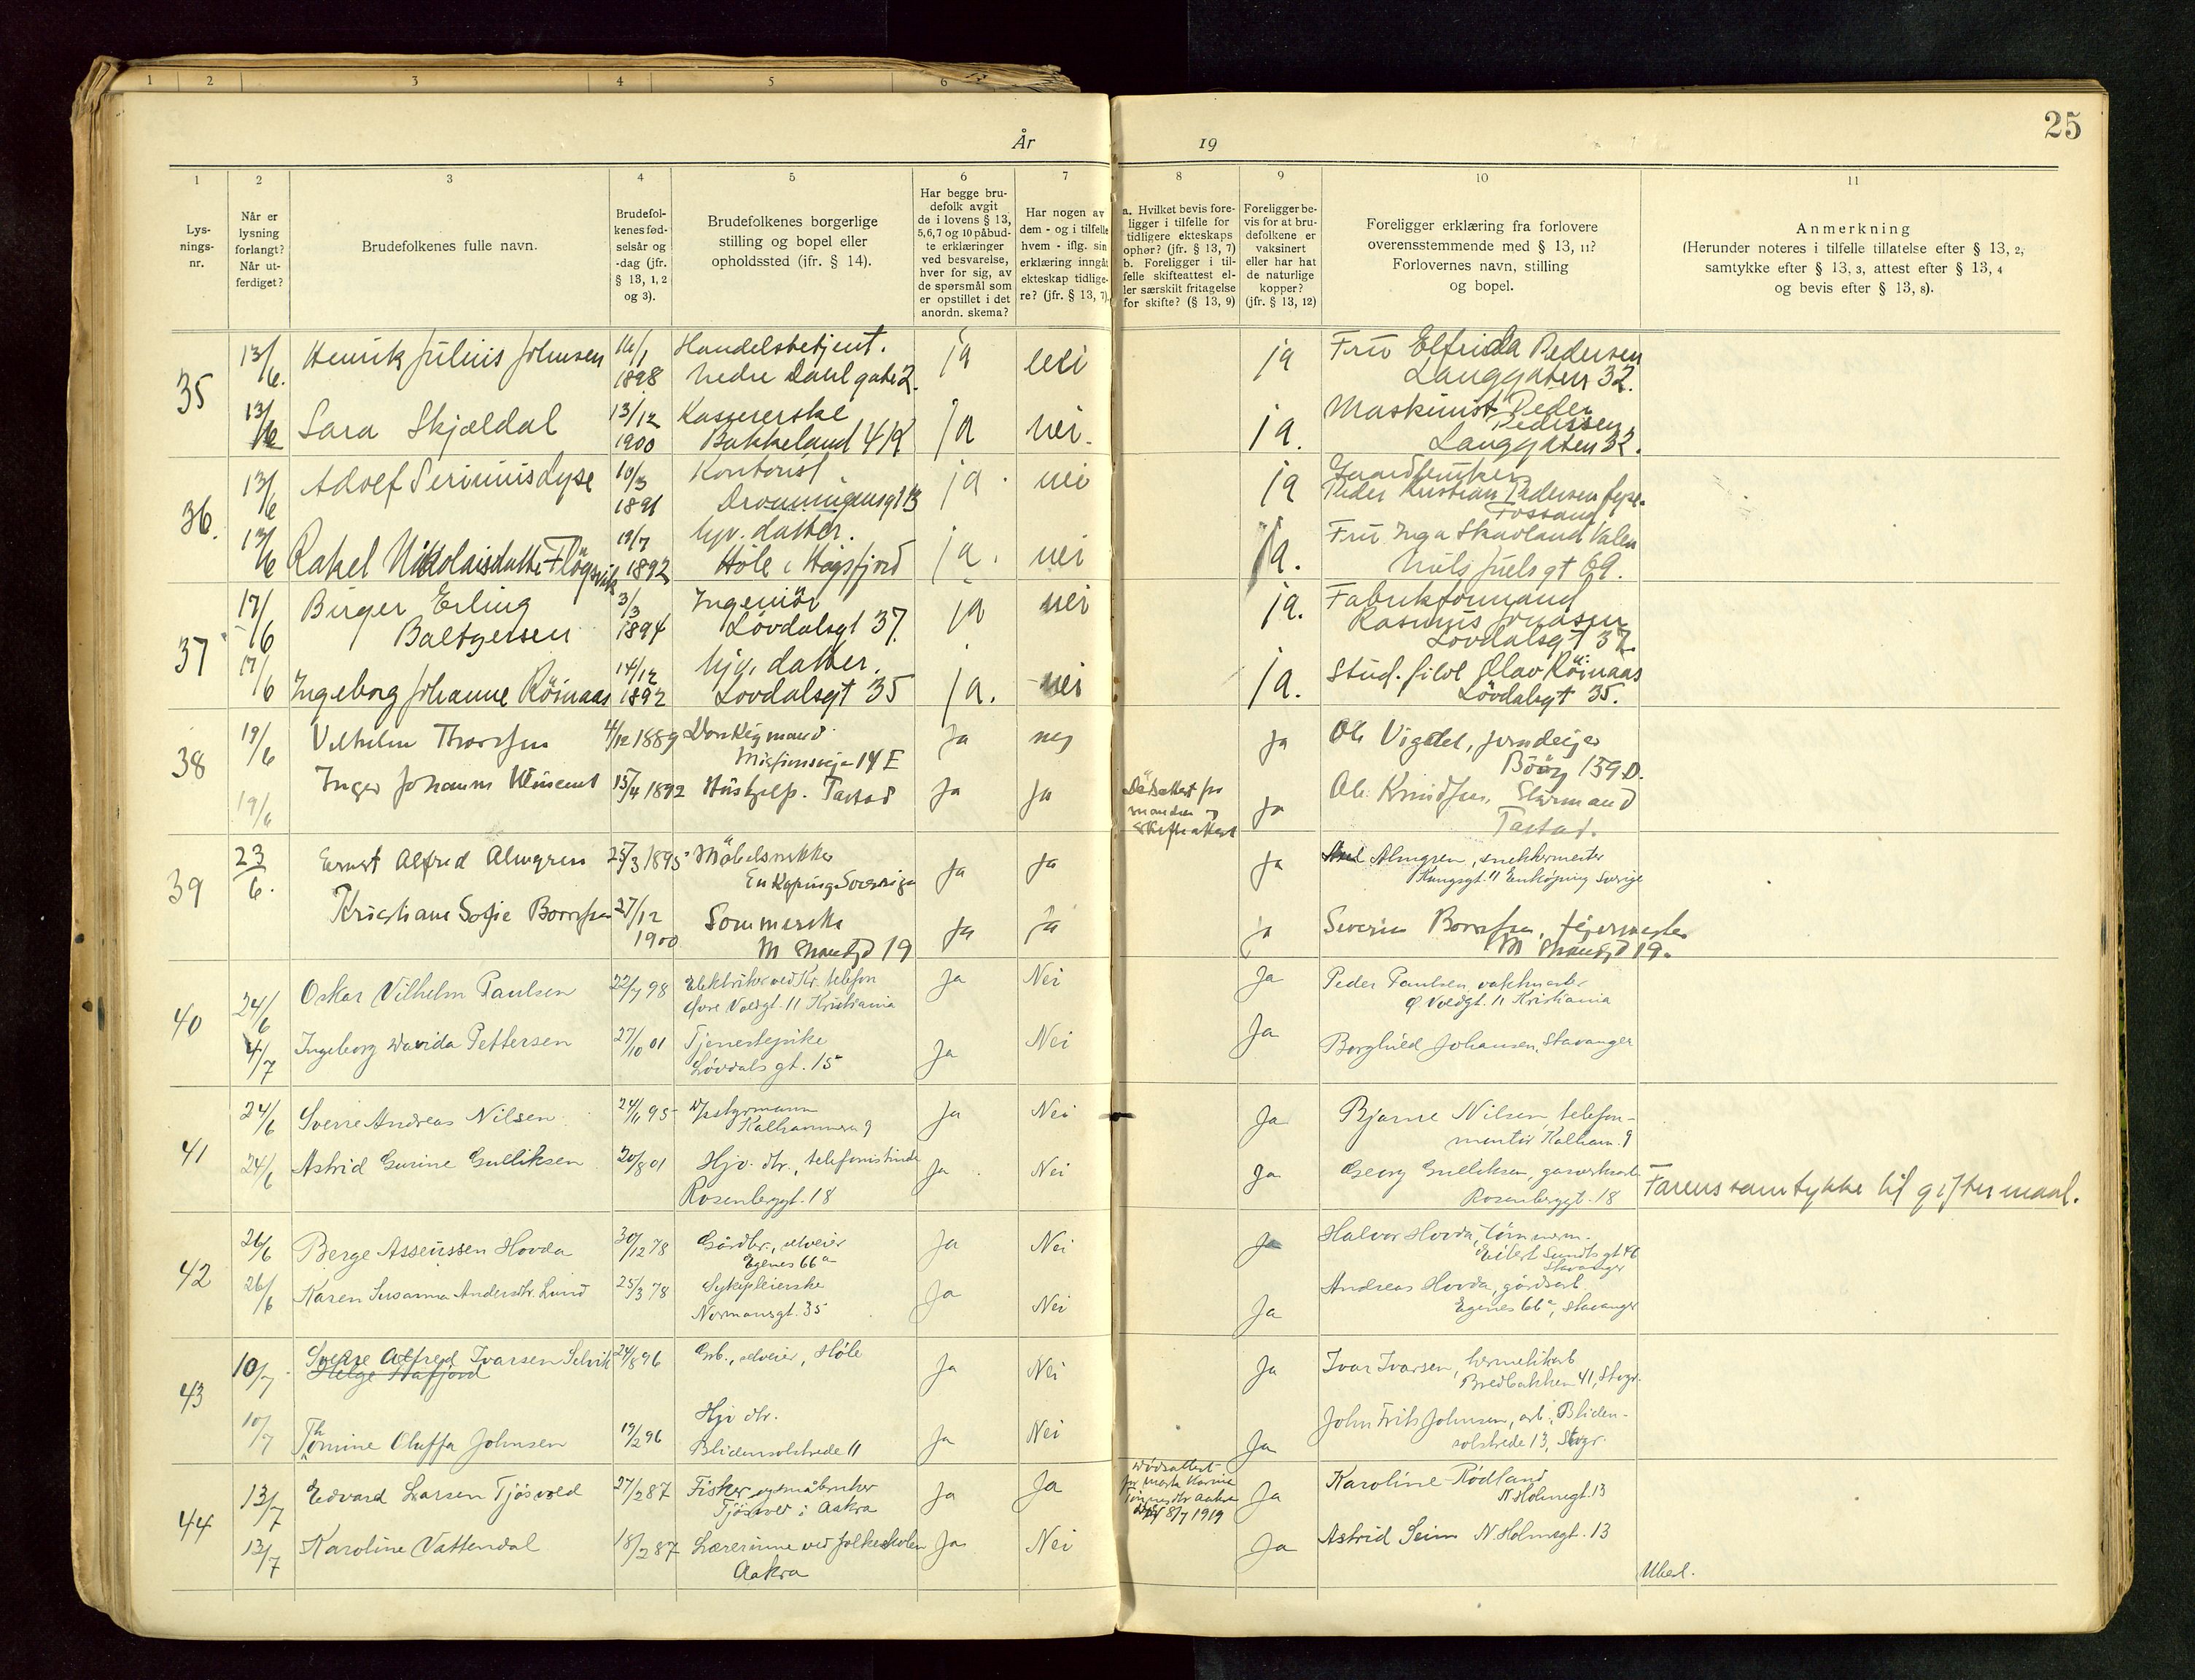 1 2 3 4 5 6
25
År 19
1 2 3 4 5 6 7 8 9 10 11
Lys-
nings-
nr.
Når er
lysning
forlangt?
Når ut-
ferdiget?
Brudefolkenes fulle navn.
Brudefol-
kenes fød-
selsår og
-dag (jfr.
§ 13, 1, 2
og 3).
Brudefolkenes borgerlige
stilling og bopel eller
opholdssted (jfr. § 14).
Har begge bru-
defolk avgit
de i lovens § 13,
5,6,7 og 10 påbud-
te erklæringer
ved besvarelse,
hver for sig, av
de spørsmål som
er opstillet i det
anordn. skema?
Har nogen av
dem - og i tilfelle
hvem - iflg. sin
erklæring inngåt
ekteskap tidlige-
re? (jfr. § 13, 7).
a. Hvilket bevis fore-
ligger i tilfelle for
tidligere ekteskaps
ophør? (jfr. § 13, 7)
b. Foreligger i til-
felle skifteattest el-
ler særskilt fritagelse
for skifte? (§ 13, 9)
Foreligger be-
vis for at bru-
defolkene er
vaksinert
eller har hat
de naturlige
kopper?
(jfr. § 13, 12)
Foreligger erklæring fra forlovere
overensstemmende med § 13, 11?
Forlovernes navn, stilling
og bopel.
Anmerkning
(Herunder noteres i tilfelle tillatelse efter § 13, 2,
samtykke efter § 13, 3, attest efter § 13, 4
og bevis efter § 13, 8).
35 13/6. Henrik Julius Johnsen 16/1 1898 Handelsbetjent. ja nei ja Fru Elfrida Pedersen
Nedre Dahlgate 2. Langgaten 32.
13/6 Sara Skjældal 13/12 1900 Kassererske ja nei. ja. Maskinist Peder
Pedersen
Bakkeland 4 Langgaten 32.
36. 13/6 Adolf Serinius Lyse 10/3 1891 Kontorist ja. nei ja Gaardbruker
Dronningensgt 13 Peder Kristian Pedersen Lyse.
Fossand
13/6 Rakel Nikolaisdatter Fløysvik 19/7 1892 hjv. datter. ja. nei ja. Fru Inga Skavland Valen
Høle i Høgsfjord Niels Juels gt 69.
37 17/6 Birger Erling 3/3 1894 Ingeniør ja nei ja. Fabrikformand
Baltzersen Løvdalsgt 37. Rasmus Jonassen
Løvdalsgt 37.
17/6 Ingeborg Johanne Röinaas 14/12 1892 hjv. datter. ja. nei ja. Stud. filol Olav Röinaas
Lovdalsgt 35 Lövdalsgt 35.
38 19/6 Vilhelm Thorsen 4/12 1889 Donkeymand ja nej ja Ole Vigdel, jerndreier
Misjonsveien 14 E 159 D.
19/6 Inger Johanne 15/4 1892 Hushjelp. Tastad Ja ja Dødsattest fra ja Ole Knudsen, Styrmand
manden og Tastad.
skifteattest
39 23/6. Ernst Alfred Almgren 25/3 1895 Möbelsnekker Ja Ja Ja Axel Almgren, snekkermester
Enköping Sverrige Kungsgt. 11 Enköping Sverige
Kristiane Sofie Borresen 27/12 1900 Sommerske Ja ja Severin Borresen, fejermester
19 19.
40 24/6 Oskar Vilhelm Paulsen 22/7 98 Elektriker ved Kr. telefon Ja Nei Ja Peder Paulsen, vaktmester
Øvre Voldgt. 11 Kristiania Ø. Voldgt. 11 Kristiania
4/7 Ingeborg Davida Pettersen 27/10 01 Tjenestepike Ja Nei Ja Borghild Johansen, Stavanger
Løvdals gt. 15
41 24/6 Sverre Andreas Nilsen 24/11 95 styrmann Ja Nei Ja Bjarne Nilsen, telefon-
Kalhammeren 9 montør Kalham. 9
24/6 Astrid Gurine Gulliksen 20/8 01 Hjv. dtr., telefonistinde Ja Nei Ja Georg Gulliksen,
Rosenberggt. 18 Rosenberggt. 18
Farens samtykke til giftermaal.
42 26/6 Berge Asseussen Hovda 30/12 78 Gårdbr., selveier Ja Nei Ja Halvor Hovda, tømmerm.
Egenes 66 a Eilert Sundts gt 46
Stavanger
26/6 Karen Susanna Andersdtr. Lund 25/3 78 Sykepleierske Ja Nei Ja Andreas Hovda, gårdsarb.
Normansgt. 35 Egenes 66 a, Stavanger
43 10/7 Sverre Alfred Ivarsen Selvik 24/8 96 Grb., selveier, Høle Ja Nei Ja Ivar Ivarsen, hermetikarb
Helge Hafjord Bredbakken 41, Stvgr.
10/7 Thomine Oluffa Johnsen 19/2 96 Hjv dtr. Ja Nei Ja John Frits Johnsen, arb. Bliden-
Blidensolstrede 11 solstrede 13, Stvgr.
44 13/7 Edvard Larsen Tjösvold 27/2 87 Fisker og småbruker Ja Ja Dødsattest Ja Karoline Rødland
Tjösvold i Aakra for Marta Karine N. Holmegt. 13
Tønnesdtr Aakra
død 8/7 1919
13/7 Karoline Vattendal 18/2 87 Lærerinne ved folkeskolen Ja Nei Ja Astrid Seim N. Holmegt. 13
Aakra